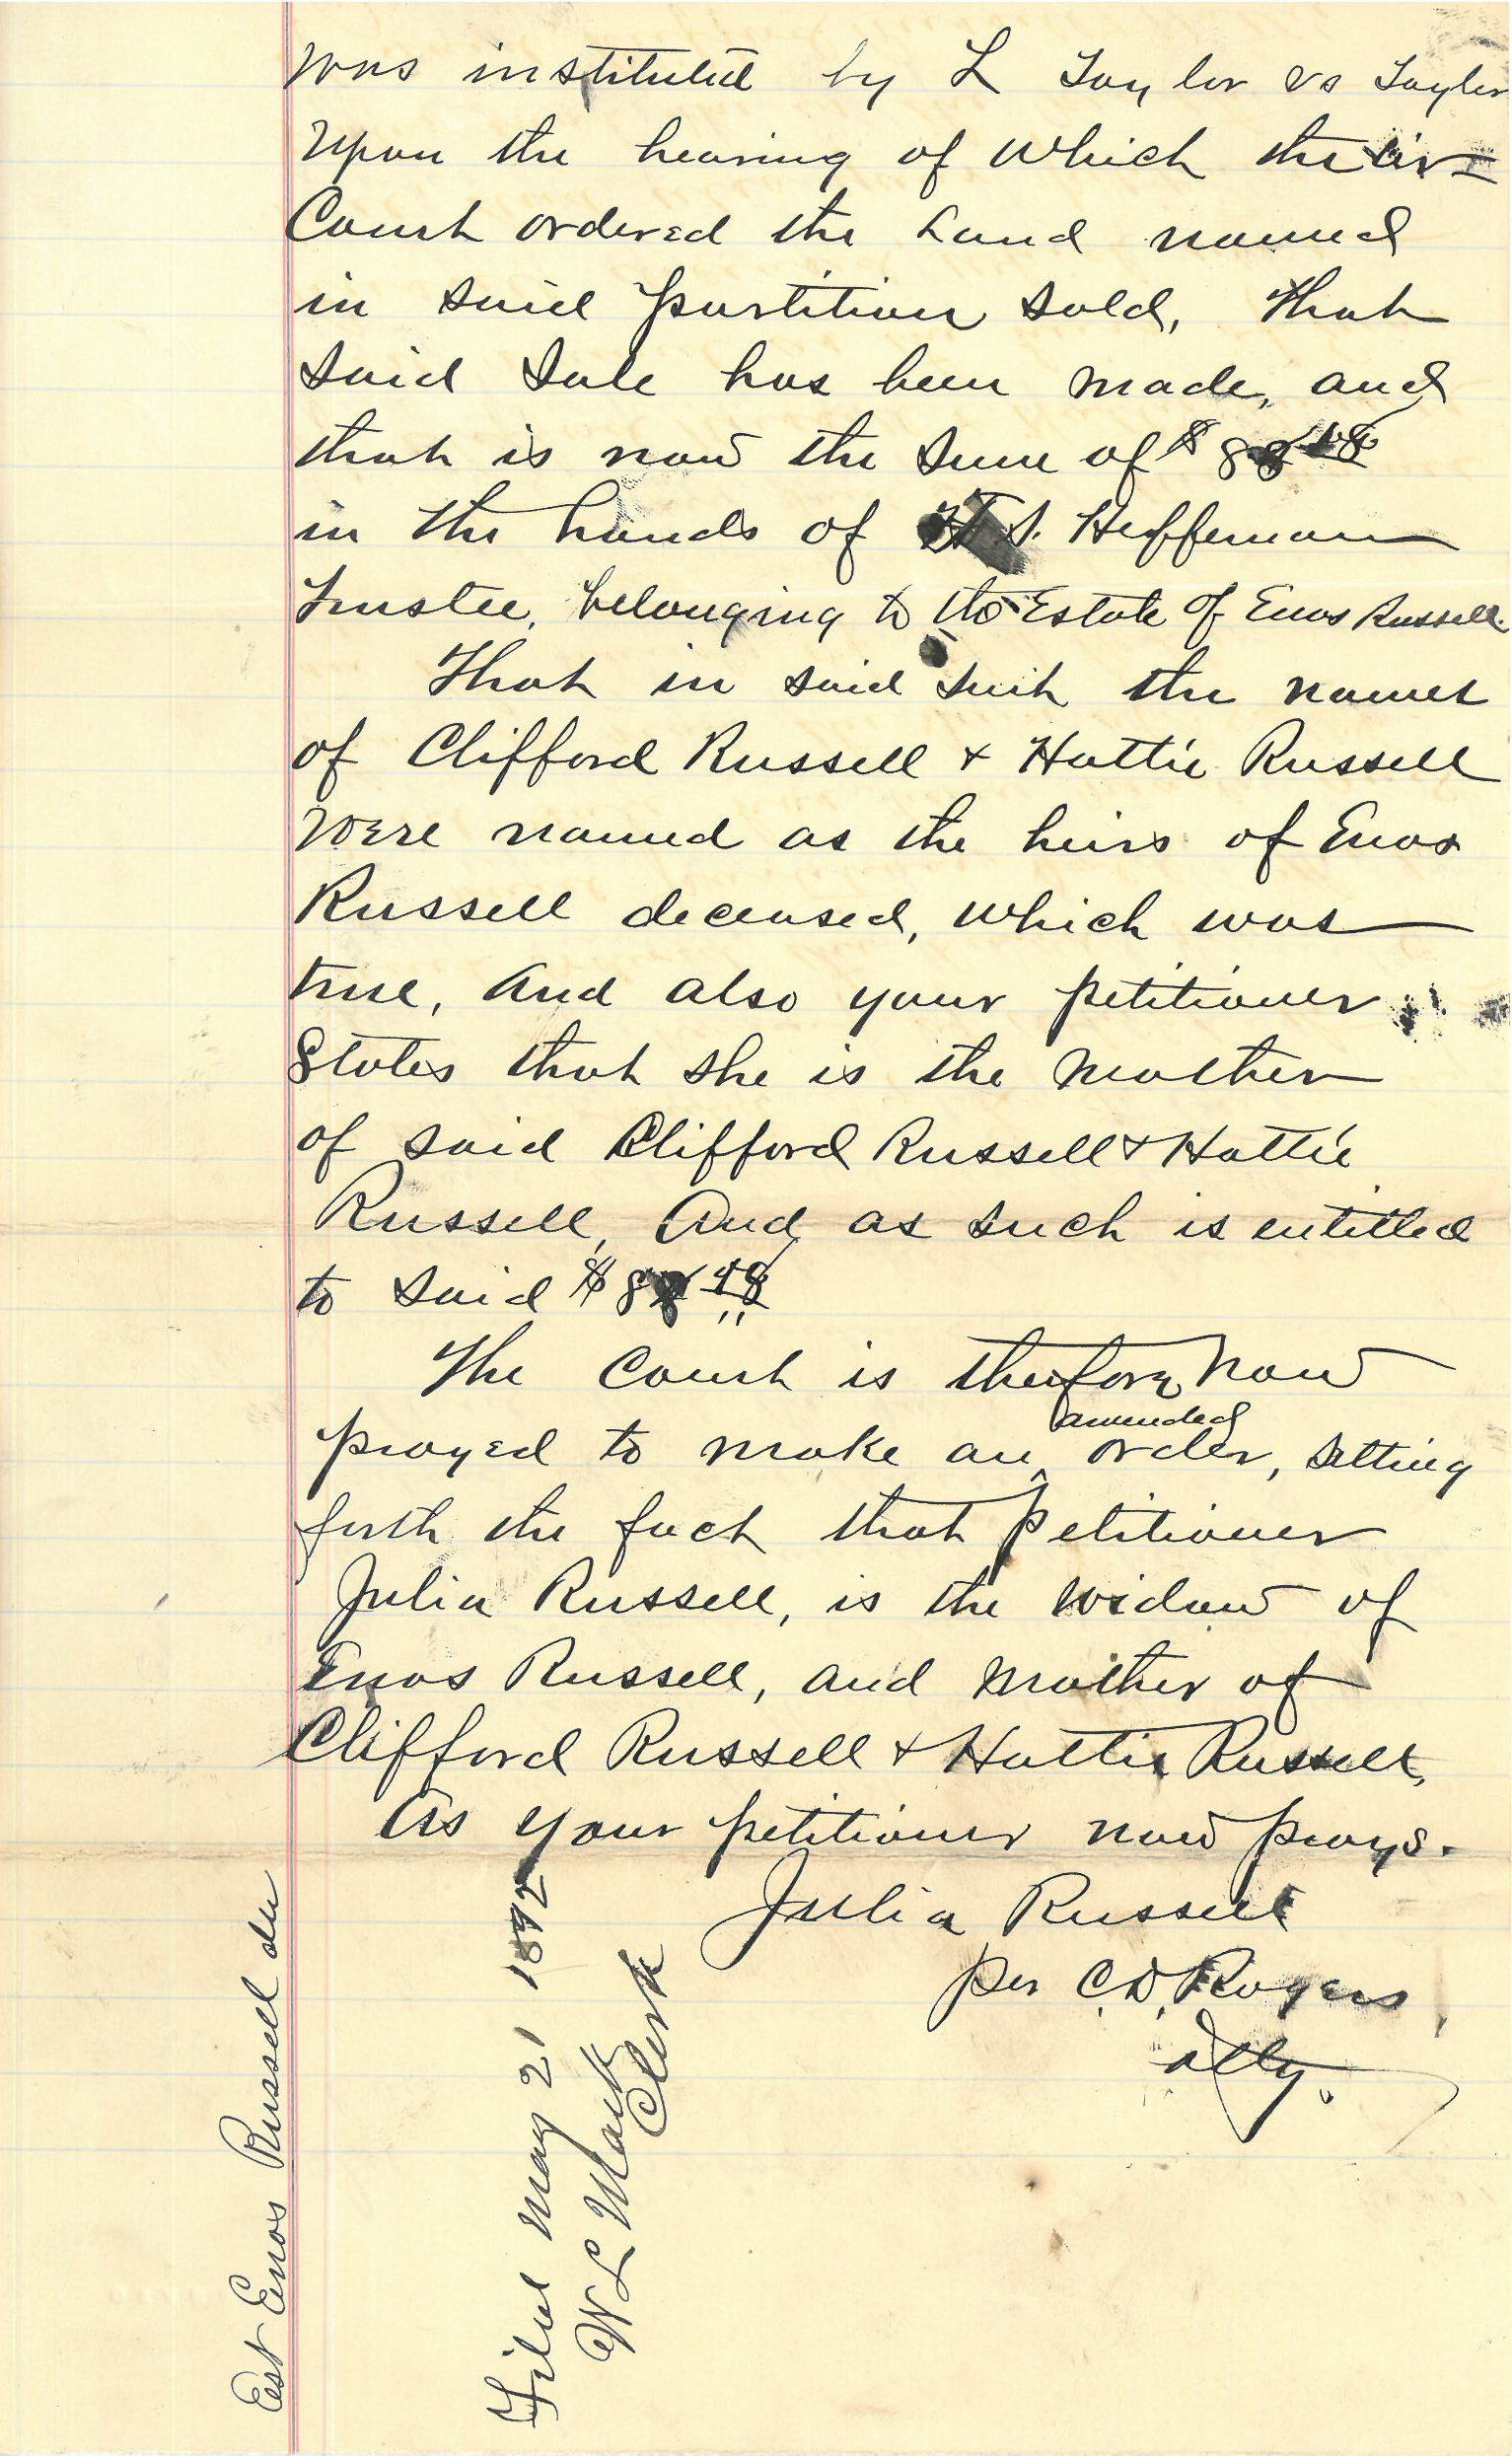 was instituted by L Taylor vs Taylor
Upon the hearing of which the Cir=
Court ordered the Land named
in said partition sold, that
said Sale has been made, and
that is now the Sum of $
in the hands of S. Heffernan
Trustee, belonging to the Estate of Enos Russell.
That in said suit the names
of Clifford Russell & Hattie Russell
were named as the heirs of Enos
Russell deceased, which was
true, And also your petitioner
States that she is the Mother
of said Clifford Russell & Hattie
Russell, And as such is entitled
to said $
The Court is therefore, now
prayed to make an amended order, setting
forth the fact that petitioner
Julia Russell, is the widow of
Enos Russell, and Mother of
Clifford Russell & Hattie Russell,
As your petitioner now prays.
Julia Russell
per C.D. Rogers,
Atty.
Est Enos Russell
Filed May 21 1892
W L Clerk